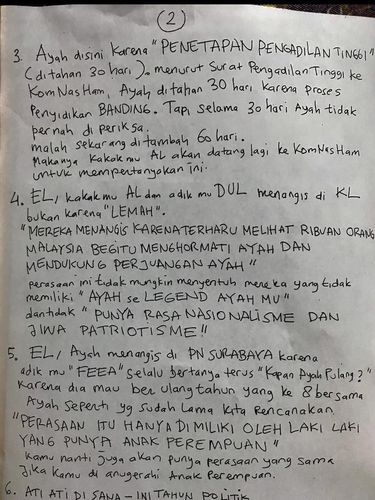 (2)
3. Ayah disini karena "PENETAPAN PENGADILAN TINGGI"
(ditahan 30 hari). menurut Surat Pengadilan Tinggi ke
KomNasHam, Ayah ditahan 30 hari karena proses
Penyidikan BANDING. Tapi selama 30 hari Ayah tidak
pernah di periksa.
malah sekarang ditambah 60 hari.
Makanya kakakmu AL akan datang lagi ke KomNasHam
untuk mempertanyakan ini.
4. EL, kakakmu AL dan adikmu DUL menangis di KL
bukan karena "LEMAH".
"MEREKA MENANGIS KARENA TERHARU MELIHAT RIBUAN ORANG
MALAYSIA BEGITU MENGHORMATI AYAH DAN
MENDUKUNG PERJUANGAN AYAH"
perasaan ini tidak mungkin menyentuh mereka yang tidak
memiliki "AYAH se LEGEND AYAH MU"
dan tidak "PUNYA RASA NASIONALISME DAN
JIWA PATRIOTISME!!
5. EL, Ayah menangis di PN SURABAYA karena
adik mu "FEEEA" selalu bertanya terus "Kapan Ayah Pulang?"
karena dia mau ber ulang tahun yang ke 8 bersama
Ayah seperti yg sudah lama kita rencanakan.
"PERASAAN ITU HANYA DIMILIKI OLEH LAKI LAKI
YANG PUNYA ANAK PEREMPUAN"
kamu nanti juga akan punya perasaan yang sama
Jika kamu di anugerahi Anak Perempuan.
6. ATI ATI DI SANA - INI TAHUN POLITIK